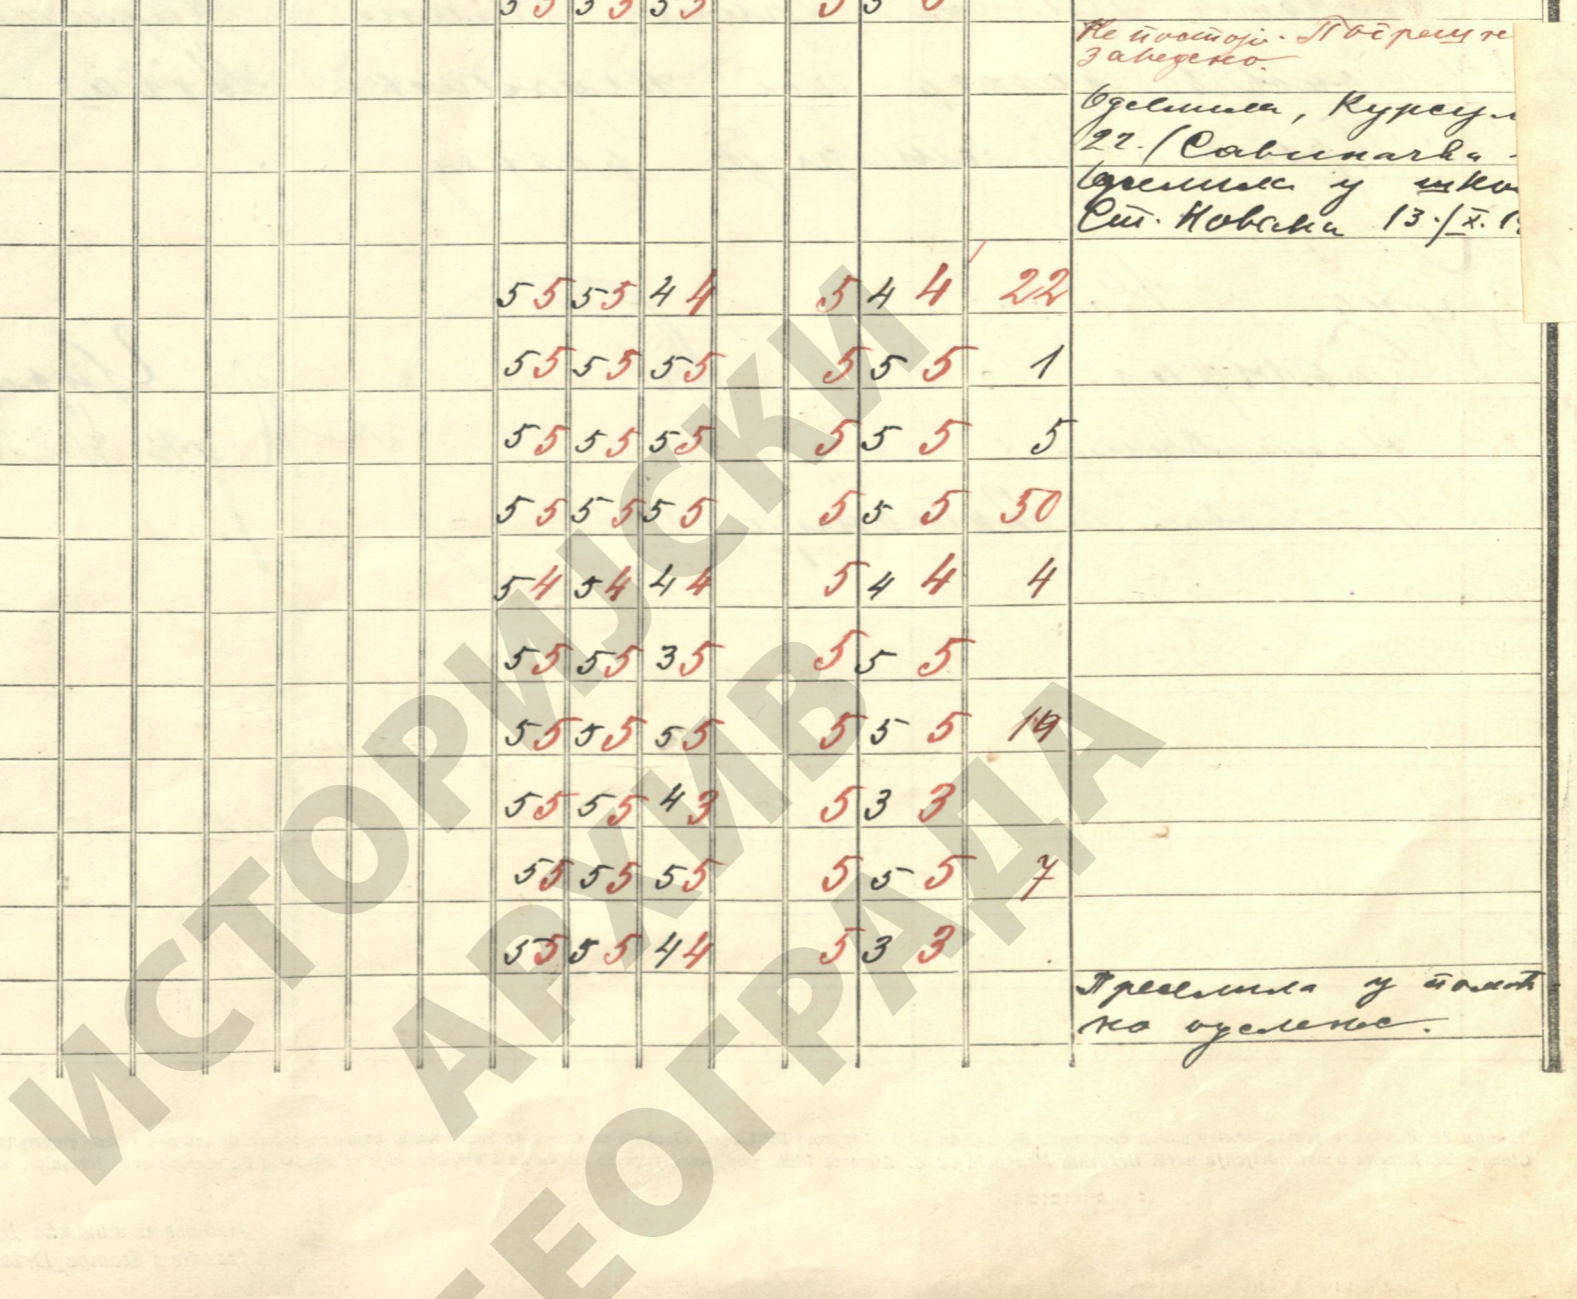 5 5 5 5 5 5 5 5 5
Не постоји. Погрешно
заведено.
Оделила, Курсул
22. (Савиначка
Оделила у шко
Ст. Новака 13./X. 1
5 5 5 5 4 4 5 4 4 22
5 5 5 5 5 5 5 5 5 1
5 5 5 5 5 5 5 5 5 5
5 5 5 5 5 5 5 5 5 30
5 4 5 4 4 4 5 4 4 4
5 5 5 5 3 5 5 5 5
5 5 5 5 5 5 5 5 5 19
5 5 5 5 4 3 5 3 3
5 5 5 5 5 5 5 5 5 7
5 5 5 5 4 4 5 3 3
Преселила у помоћ-
но оделење.
ИСТОРИЈСКИ
АРХИВ
БЕОГРАДА